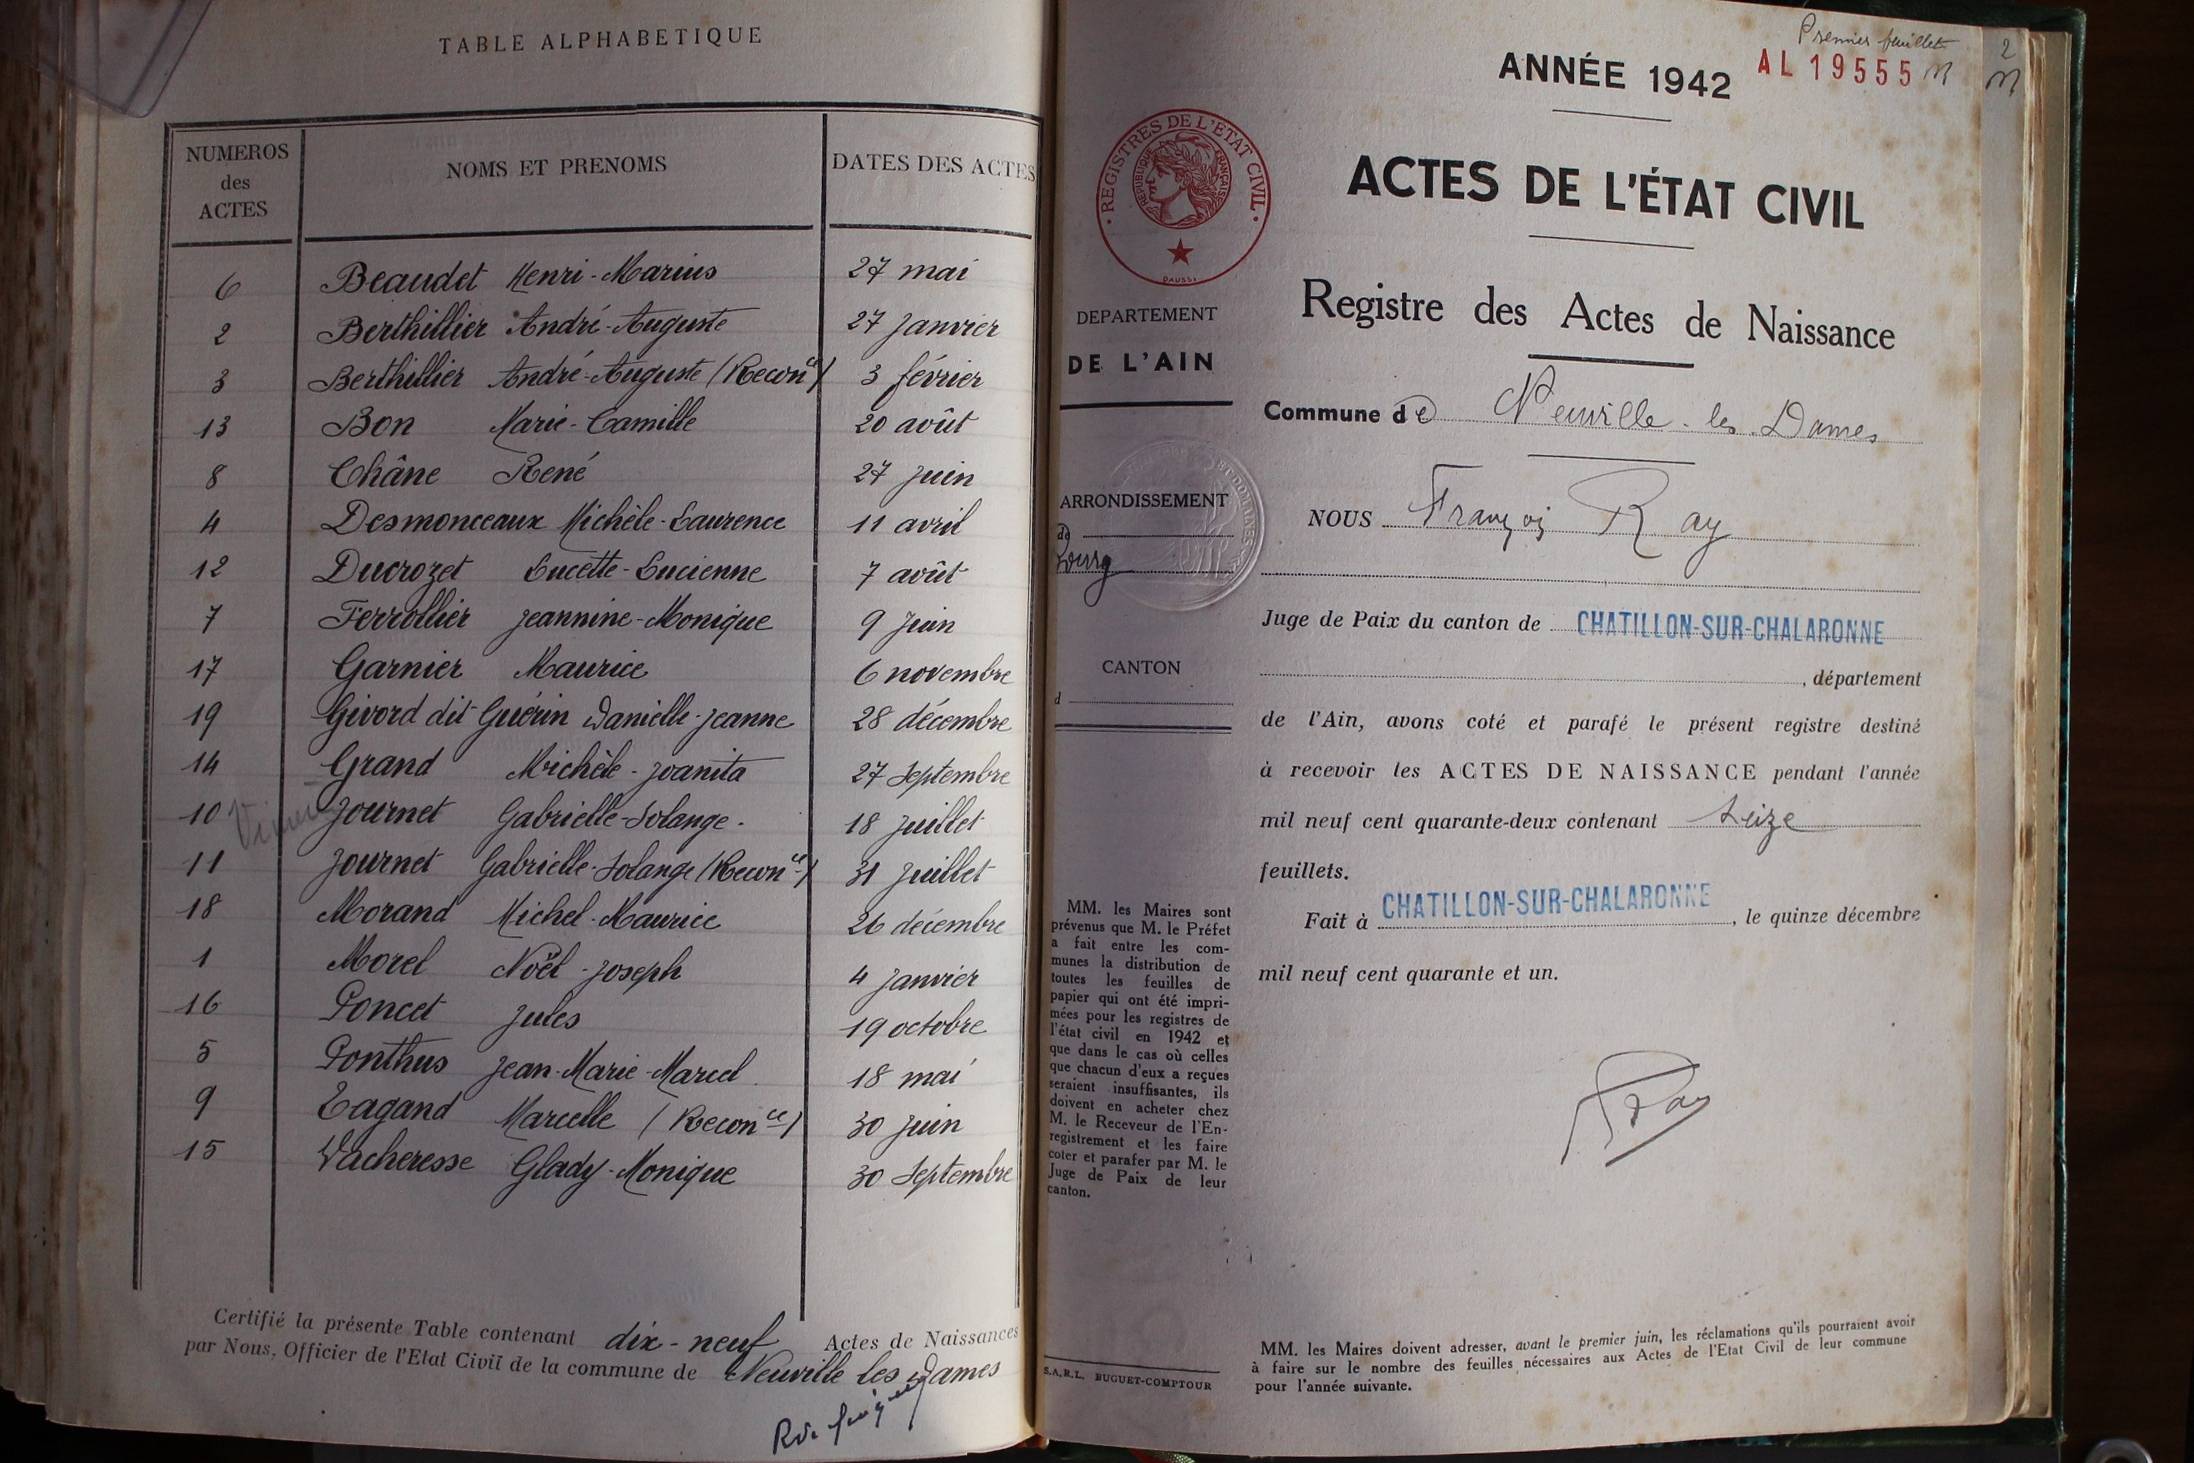 TABLE ALPHABETIQUE
NUMEROS des ACTES
NOMS ET PRENOMS
DATES DES ACTES
6 Beaudet Henri-Marius 27 mai
2 Berthillier André-Auguste 27 janvier
3 Berthillier André-Auguste (Reconce) 3 février
13 Bon Marie-Camille 20 août
8 Châne René 27 juin
4 Desmonceaux Michèle-Laurence 11 avril
12 Ducrozet Lucette-Lucienne 7 août
7 Ferrollier Jeannine-Monique 9 juin
17 Garnier Maurice 6 novembre
19 Givord dit Guérin Danielle-Jeanne 28 décembre
14 Grand Michèle-Joanita 27 Septembre
10 Journet Gabrielle-Solange. 18 juillet
11 Journet Gabrielle-Solange (Reconce) 31 juillet
18 Morand Michel-Maurice 26 décembre
1 Morel Noël-Joseph 4 janvier
16 Poncet Jules 19 octobre
5 Ponthus Jean-Marie-Marcel 18 mai
9 Tagand Marcelle (Reconce) 30 juin
15 Vacheresse Glady-Monique 30 Septembre
Certifié la présente Table contenant dix-neuf Actes de Naissances
par Nous, Officier de l'Etat Civil de la commune de Neuville les Dames
Premier feuillet
2
ANNÉE 1942
AL 19555
REGISTRES DE L'ÉTAT CIVIL
RÉPUBLIQUE FRANÇAISE
DAUSSY
ACTES DE L'ÉTAT CIVIL
Registre des Actes de Naissance
DEPARTEMENT
DE L'AIN
Commune de Neuville-les-Dames
ARRONDISSEMENT
de
Bourg
CANTON
d
NOUS François Ray
Juge de Paix du canton de CHATILLON-SUR-CHALARONNE
, département
de l'Ain, avons coté et parafé le présent registre destiné
à recevoir les ACTES DE NAISSANCE pendant l'année
mil neuf cent quarante-deux contenant seize
feuillets.
Fait à CHATILLON-SUR-CHALARONNE, le quinze décembre
mil neuf cent quarante et un.
Ray
MM. les Maires sont
prévenus que M. le Préfet
a fait entre les com-
munes la distribution de
toutes les feuilles de
papier qui ont été impri-
mées pour les registres de
l'état civil en 1942 et
que dans le cas où celles
que chacun d'eux a reçues
seraient insuffisantes, ils
doivent en acheter chez
M. le Receveur de l'En-
registrement et les faire
coter et parafer par M. le
Juge de Paix de leur
canton.
S.A.R.L. BUGUET-COMPTOUR
MM. les Maires doivent adresser, avant le premier juin, les réclamations qu'ils pourraient avoir
à faire sur le nombre des feuilles nécessaires aux Actes de l'Etat Civil de leur commune
pour l'année suivante.